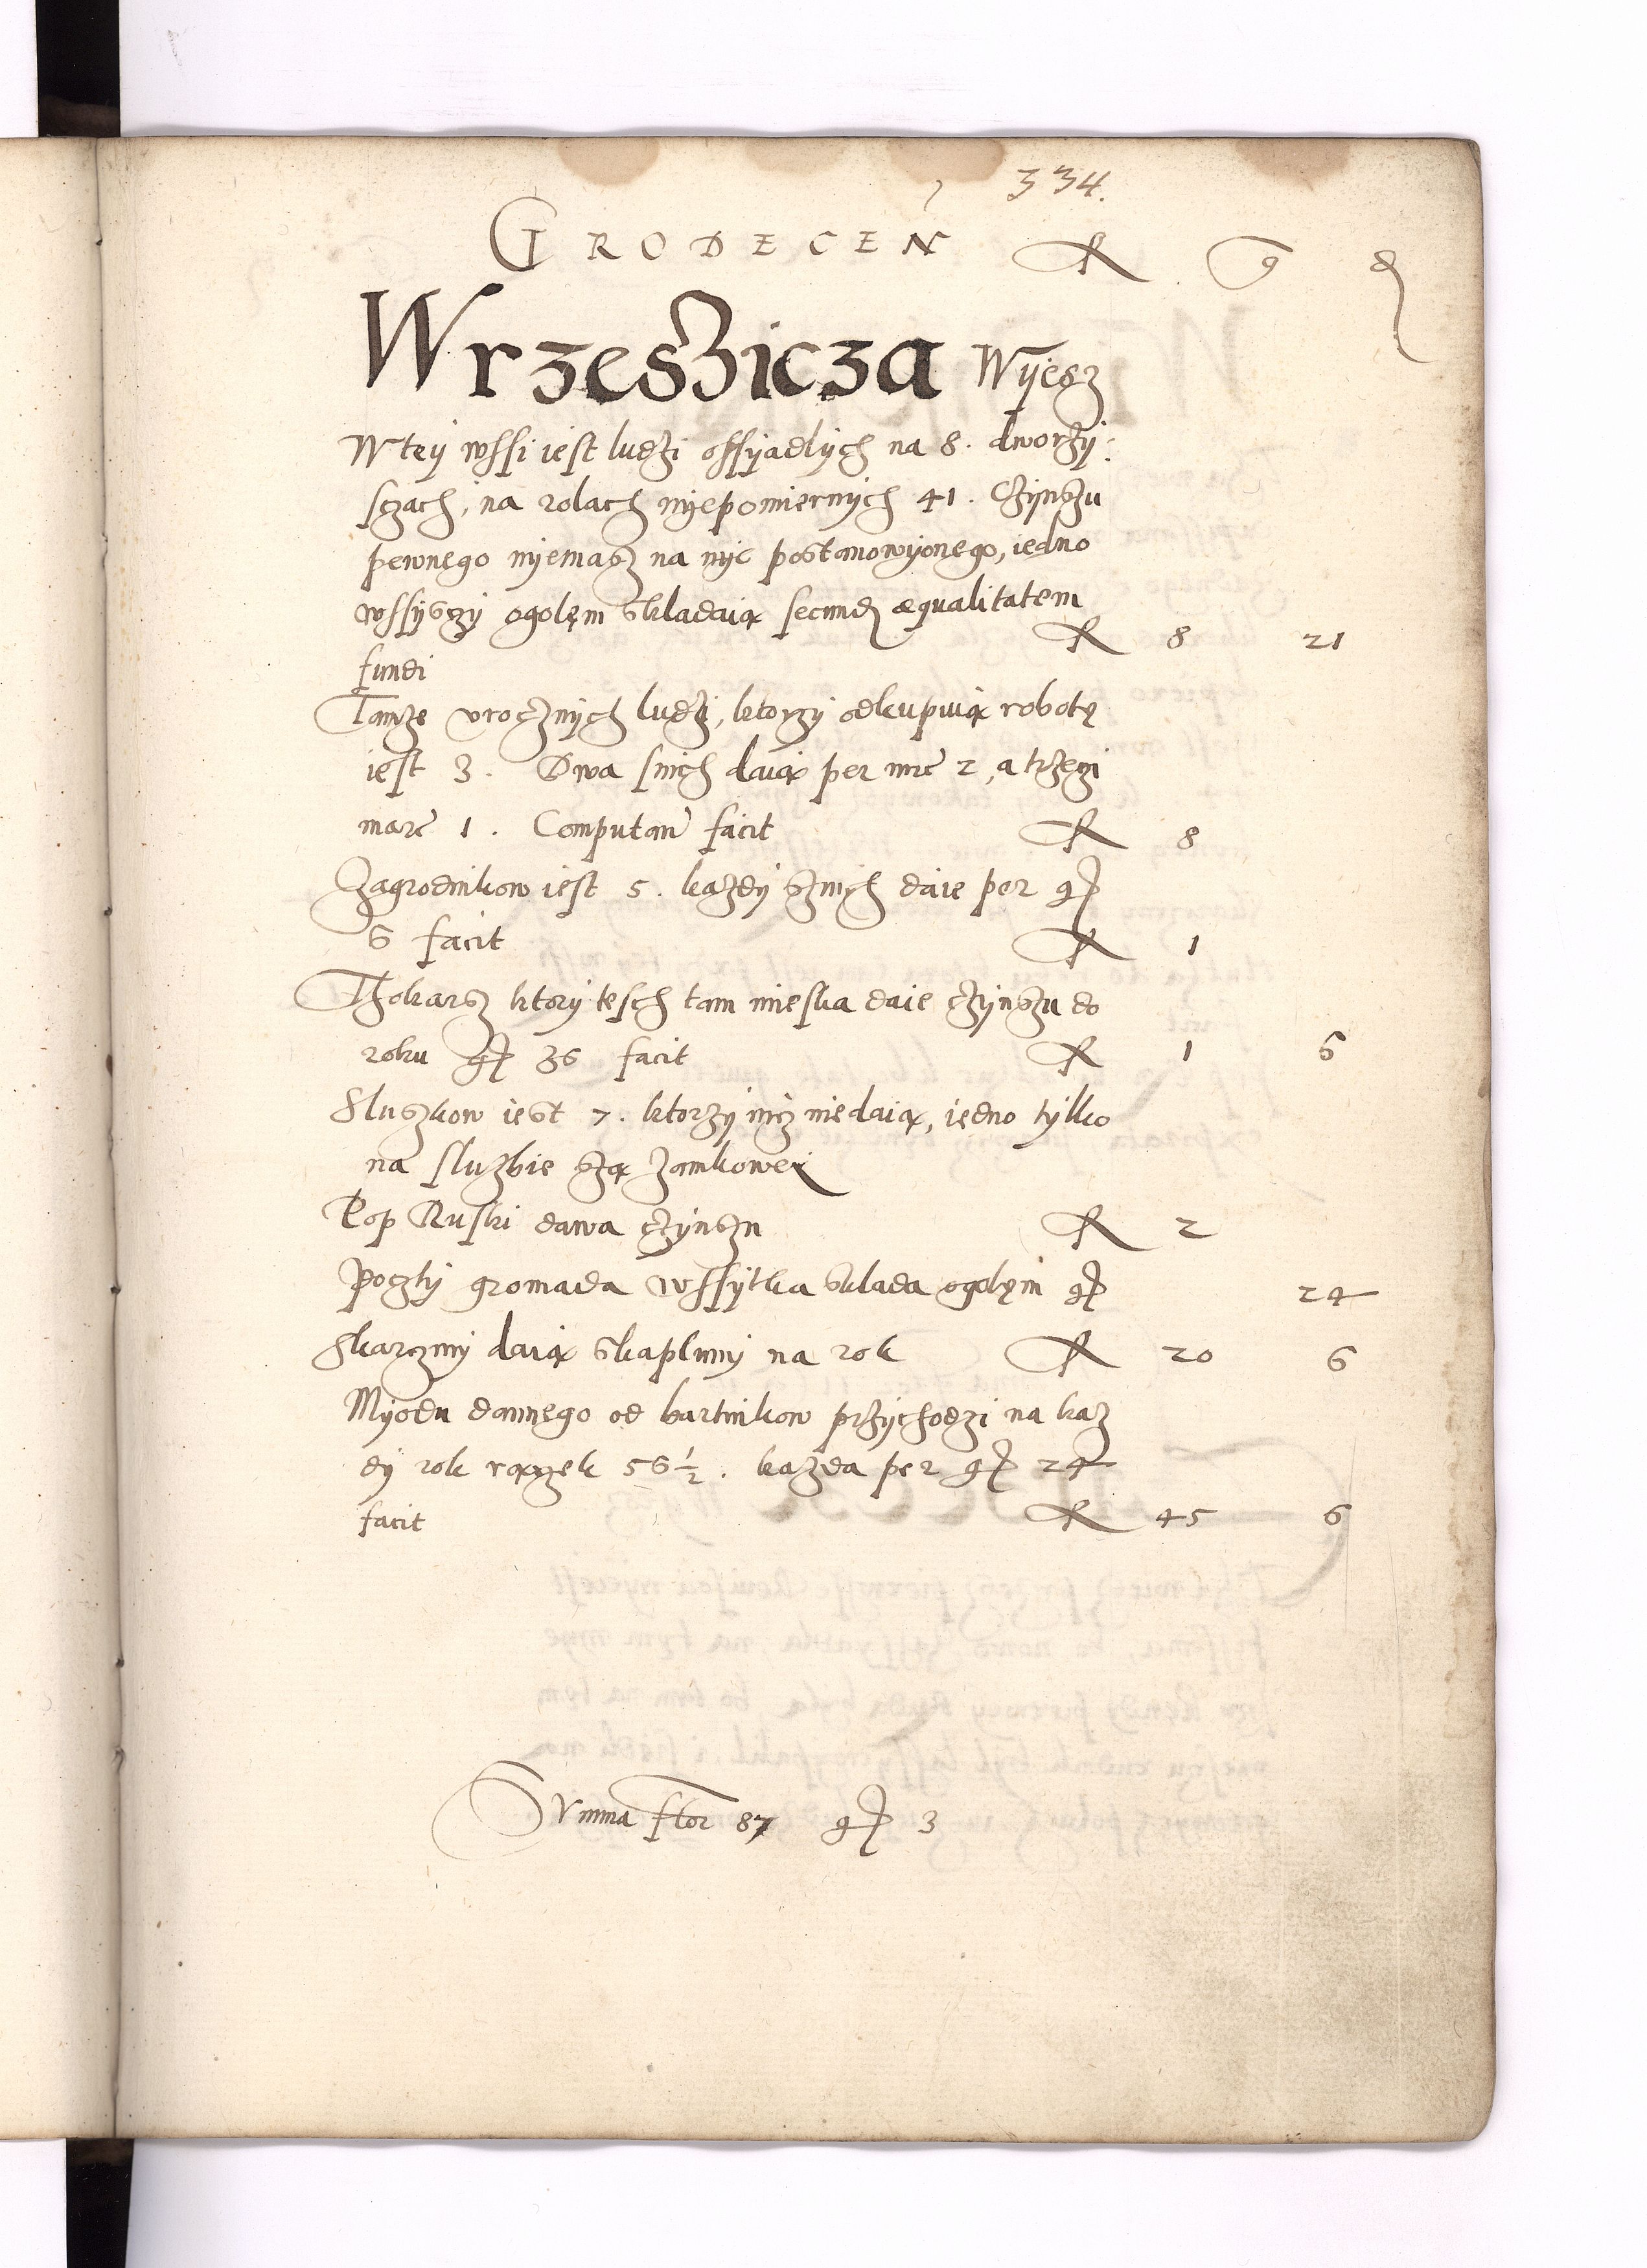 334.
GRODECEN̄ fl g d
Wrzeszicza Wÿesz
W teÿ wssi iest ludzi ossÿadlÿch na 8. dworzÿ:
sczach, na rolach nÿepomiernÿch 41. Czÿnszu
pewnego nÿemasz na nÿc postanowÿonego, iedno
wssÿsczÿ ogolęm skladaią secund æqualitatem
fl 8 21
fundi
Tamze vrocznÿch ludzi, ktorzÿ odkupuią robotę
iest 3. Dwa snich daią per mrc 2, a trzeci
marc 1. Computan̄ facit fl 8
Zagrodnikow iest 5. kazdÿ sznich daie per gr
6 facit fl 1
Thokarsz ktorÿ tesch tam mieska daie czÿnszu do
roku gr 36 facit fl 1 6
Sluszkow iest 7. ktorzÿ nicz niedaią, iedno tÿlko
na sluzbie szą zamkoweÿ
Pop Ruski dawa czÿnszu fl 2
Pocztÿ gromada wssÿtka sklada ogolęm gr 24
Skarczmÿ daią skaplunÿ na rok fl 20 6
Mÿodu dannego od bartnikow przÿchodzi na kaz
dÿ rok rączek 56 1/2. kazda per gr 24
facit fl 45 6
Summa flor 87 gr 3